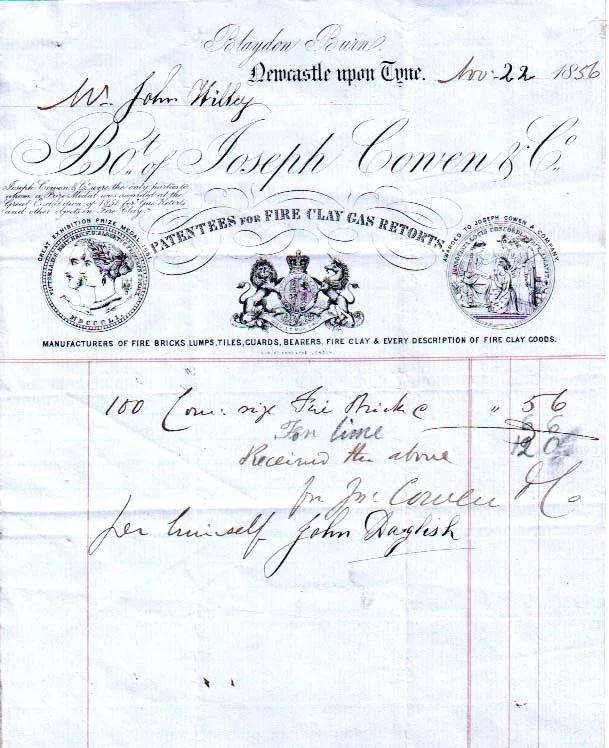 Blaydon Burn.
Newcastle upon Tyne. Nov. 22 1856
Mr. John Wilkey
Bot. of Joseph Cowen & Co.
Joseph Cowen & Co. were the only parties to
whom a Prize Medal was awarded at the
Great Exhibition of 1851 for "Gas Retorts
and other objects in Fire Clay"
PATENTEES FOR FIRE CLAY GAS RETORTS.
GREAT EXHIBITION PRIZE MEDAL 1851
AWARDED TO JOSEPH COWEN & COMPANY.
MDCCCLI
MANUFACTURERS OF FIRE BRICKS, LUMPS, TILES, GUARDS, BEARERS, FIRE CLAY & EVERY DESCRIPTION OF FIRE CLAY GOODS.
100 Com: size Fire Bricks @ " 5 6
For lime 6 6
12 0
Received the above
for Jos. Cowen & Co
per himself John Daglish